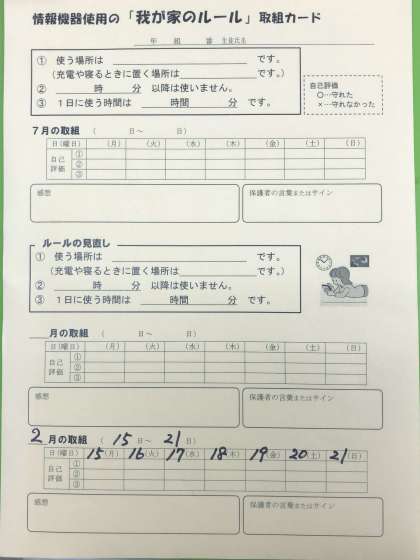 情報機器使用の「我が家のルール」取組カード
年 組 番 生徒氏名
① 使う場所は です。
（充電や寝るときに置く場所は です。）
② 時 分 以降は使いません。
③ １日に使う時間は 時間 分 です。
自己評価
○…守れた
×…守れなかった
７月の取組 （ 日～ 日）
日（曜日） （月） （火） （水） （木） （金） （土） （日）
自己評価 ① ② ③
感想
保護者の言葉またはサイン
ルールの見直し
① 使う場所は です。
（充電や寝るときに置く場所は です。）
② 時 分 以降は使いません。
③ １日に使う時間は 時間 分 です。
月の取組 （ 日～ 日）
日（曜日） （月） （火） （水） （木） （金） （土） （日）
自己評価 ① ② ③
感想
保護者の言葉またはサイン
2月の取組 （ 15日～ 21日）
日（曜日） 15（月） 16（火） 17（水） 18（木） 19（金） 20（土） 21（日）
自己評価 ① ② ③
感想
保護者の言葉またはサイン